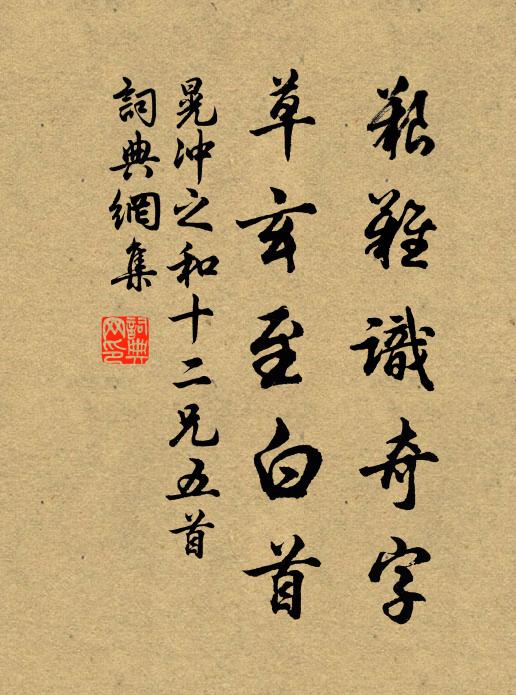 艱難識奇字
草玄至白首
晁冲之和十二兄五首
詞典網集
詞典網印